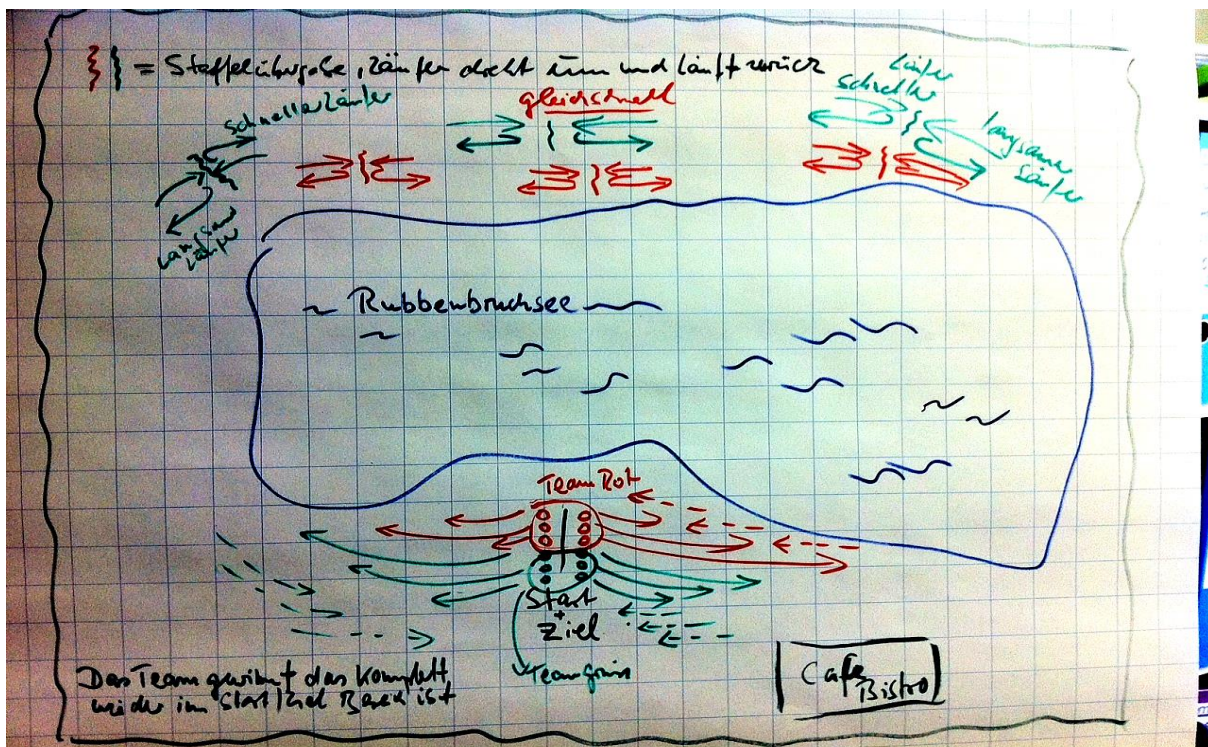 = Staffelübergabe, Läufer dreht um und läuft zurück
schneller Läufer
gleichschnell
Läufer
schneller
langsamer
Läufer
langsam
Läufer
Rubbenbruchsee
Team Rot
Start
+
Ziel
Team grün
Das Team gewinnt das komplett
wieder im Start/Ziel Bereich ist
Cafe
Bistro